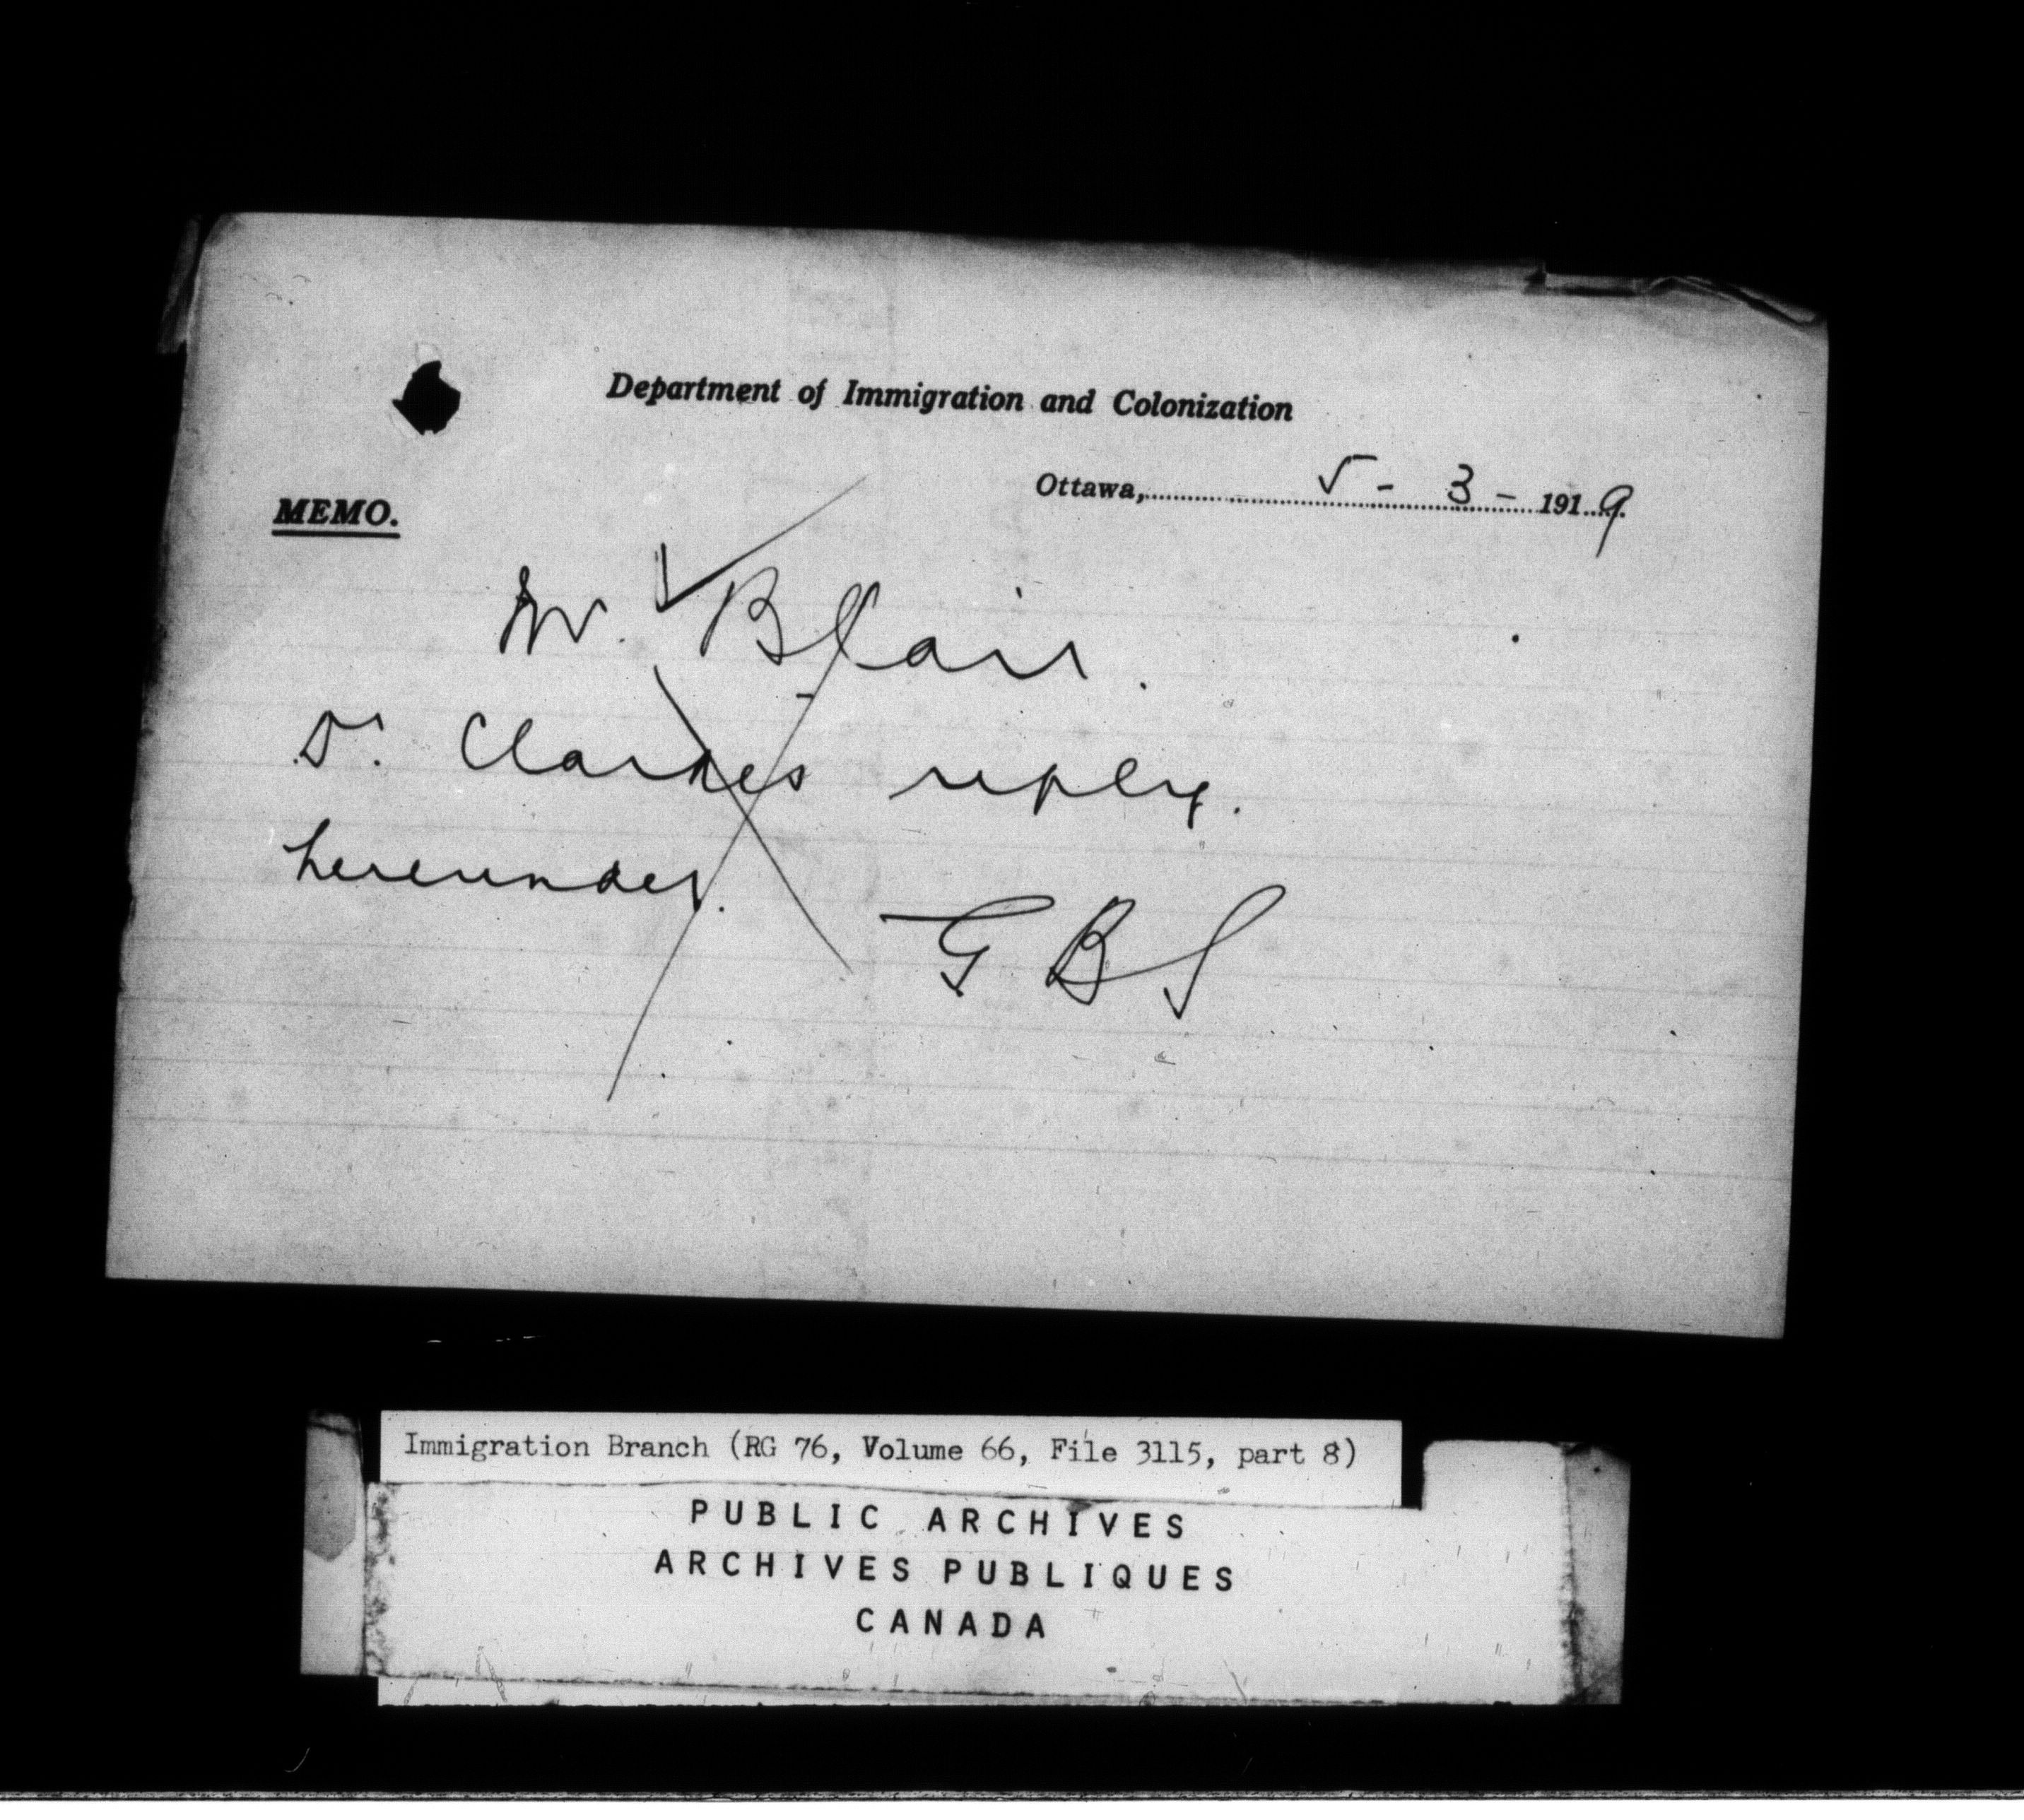 Department of Immigration and Colonization
Ottawa, 5 - 3 - 1919.
MEMO.
Mr. Blair.
Dr. Clarkes reply.
hereunder.
GBS
Immigration Branch (RG 76, Volume 66, File 3115, part 8)
PUBLIC ARCHIVES
ARCHIVES PUBLIQUES
CANADA